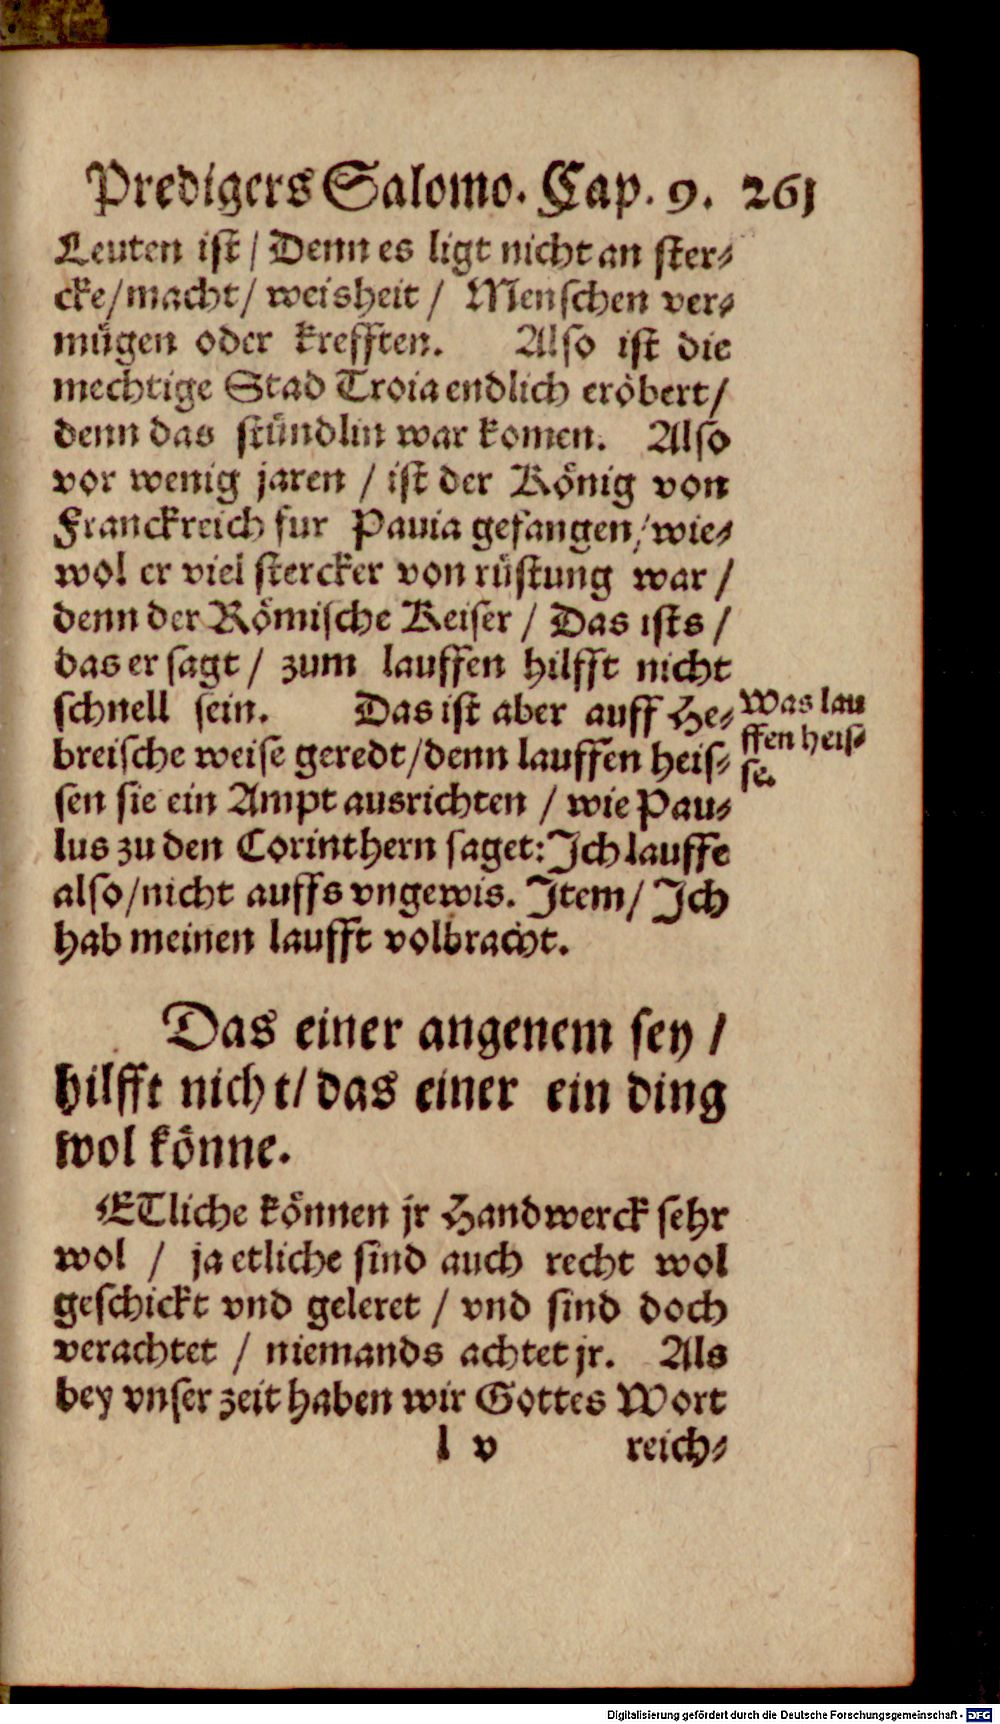 Predigers Salomo. Cap. 9. 261
Leuten ist / Denn es ligt nicht an ster⸗
cke/macht/ weisheit / Menschen ver⸗
mügen oder krefften. Also ist die
mechtige Stad Troia endlich eröbert/
denn das stündlin war komen. Also
vor wenig jaren / ist der König von
Franckreich fur Pauia gefangen/wie⸗
wol er viel stercker von rüstung war /
denn der Römische Keiser / Das ists /
das er sagt / zum lauffen hilfft nicht
schnell sein. Das ist aber auff He⸗
breische weise geredt/denn lauffen heis⸗
sen sie ein Ampt ausrichten / wie Pau⸗
lus zu den Corinthern saget: Ich lauffe
also/nicht auffs vngewis. Item/ Ich
hab meinen laufft volbracht.
Was lau
ffen heis⸗
se.
Das einer angenem sey /
hilfft nicht/ das einer ein ding
wol könne.
ETliche können jr Handwerck sehr
wol / ja etliche sind auch recht wol
geschickt vnd geleret / vnd sind doch
verachtet / niemands achtet jr. Als
bey vnser zeit haben wir Gottes Wort
l v reich⸗
Digitalisierung gefördert durch die Deutsche Forschungsgemeinschaft - DFG